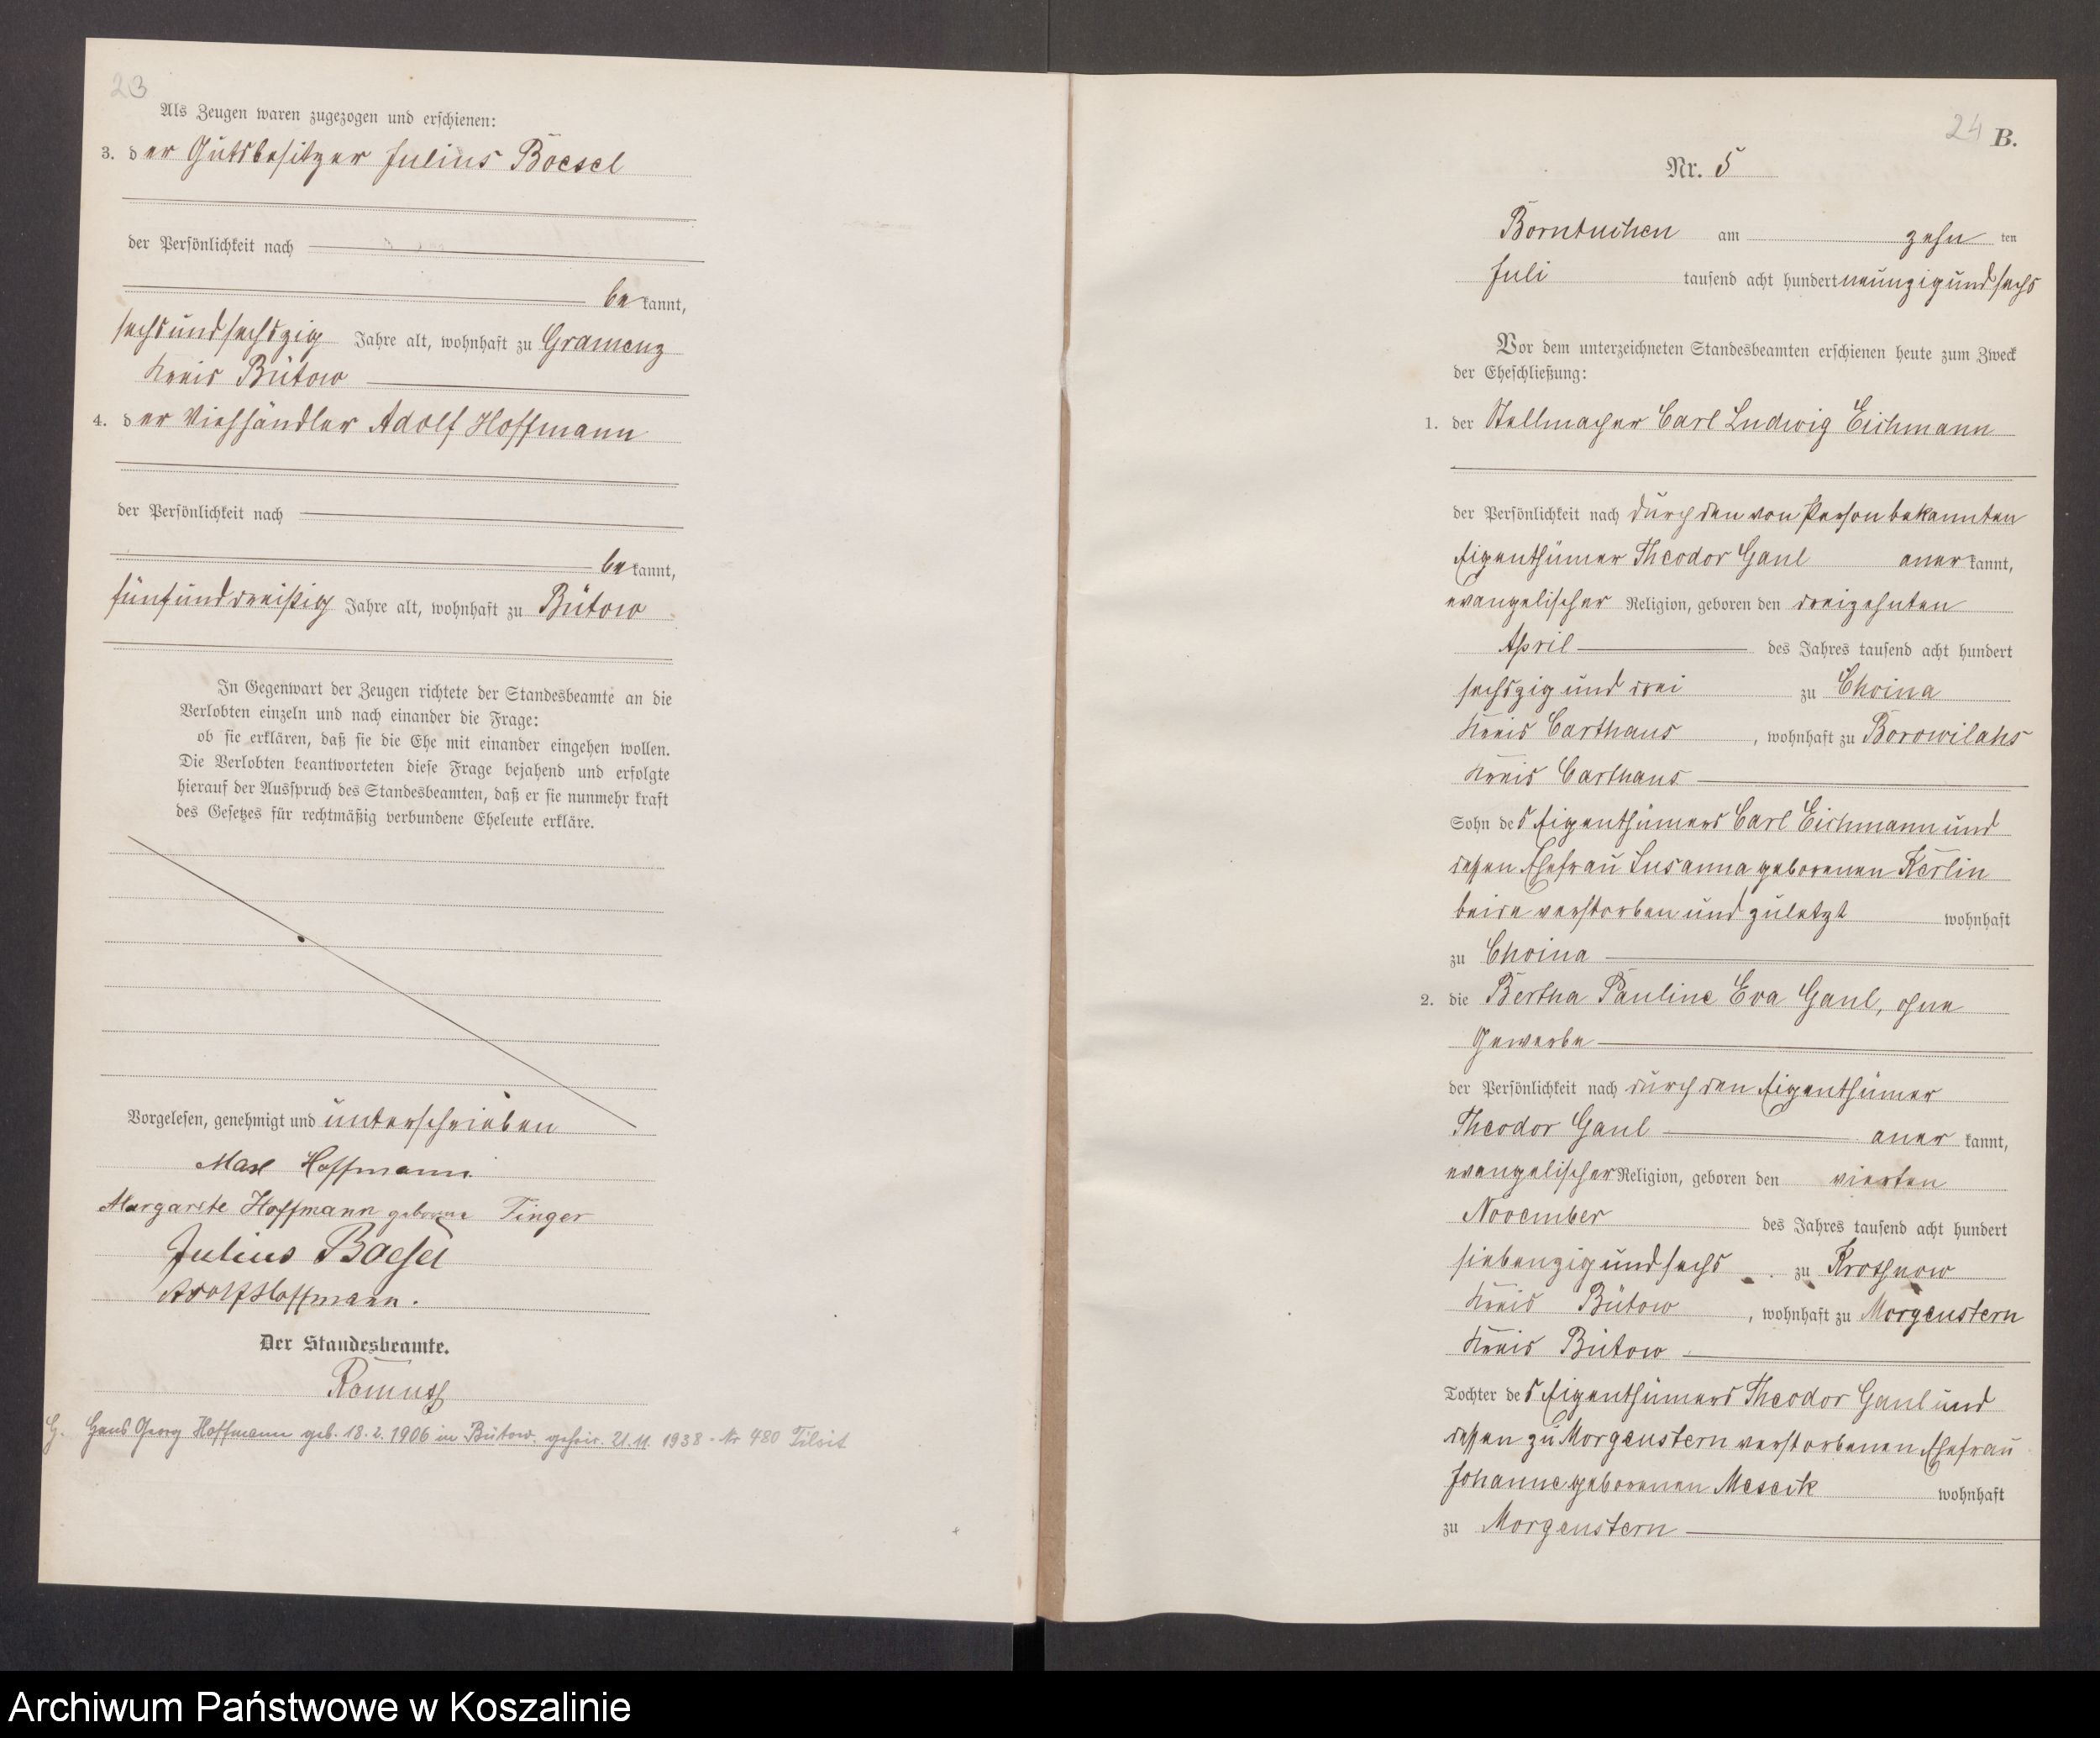 23
Als Zeugen waren zugezogen und erschienen:
3. der Gutsbesitzer Julius Boesel
der Persönlichkeit nach
bekannt,
sechsundsechszig Jahre alt, wohnhaft zu Gramenz
Kreis Bütow
4. der Viehhändler Adolf Hoffmann
der Persönlichkeit nach
bekannt,
fünfunddreißig Jahre alt, wohnhaft zu Bütow
In Gegenwart der Zeugen richtete der Standesbeamte an die
Verlobten einzeln und nach einander die Frage:
ob sie erklären, daß sie die Ehe mit einander eingehen wollen.
Die Verlobten beantworteten diese Frage bejahend und erfolgte
hierauf der Ausspruch des Standesbeamten, daß er sie nunmehr kraft
des Gesetzes für rechtmäßig verbundene Eheleute erkläre.
Vorgelesen, genehmigt und unterschrieben
Max Hoffmann.
Margarete Hoffmann geborene Tinger
Julius Boesel
Adolf Hoffmann.
Der Standesbeamte.
G. Hans Georg Hoffmann geb. 18.2.1906 in Bütow. geheir. 21.11.1938 - Nr 480 Tilsit
24 B.
Nr. 5
Borntuchen am zehn ten
Juli tausend acht hundert neunzig und sechs
Vor dem unterzeichneten Standesbeamten erschienen heute zum Zweck
der Eheschließung:
1. der Stellmacher Carl Ludwig Eichmann
der Persönlichkeit nach durch den von Person bekannten
Eigenthümer Theodor Gaul anerkannt,
evangelischer Religion, geboren den dreizehnten
April des Jahres tausend acht hundert
sechszig und drei zu Choina
Kreis Carthaus, wohnhaft zu Borowilahs
Kreis Carthaus
Sohn des Eigenthümers Carl Eichmann und
dessen Ehefrau Susanna geborenen Kerlin
beide verstorben und zuletzt wohnhaft
zu Choina
2. die Bertha Pauline Eva Gaul, ohne
Gewerbe
der Persönlichkeit nach durch den Eigenthümer
Theodor Gaul anerkannt,
evangelischer Religion, geboren den vierten
November des Jahres tausend acht hundert
siebenzig und sechs zu Krosnow
Kreis Bütow, wohnhaft zu Morgenstern
Kreis Bütow
Tochter des Eigenthümers Theodor Gaul und
dessen zu Morgenstern verstorbenen Ehefrau
Johanne geborenen Mescik wohnhaft
zu Morgenstern
Archiwum Państwowe w Koszalinie